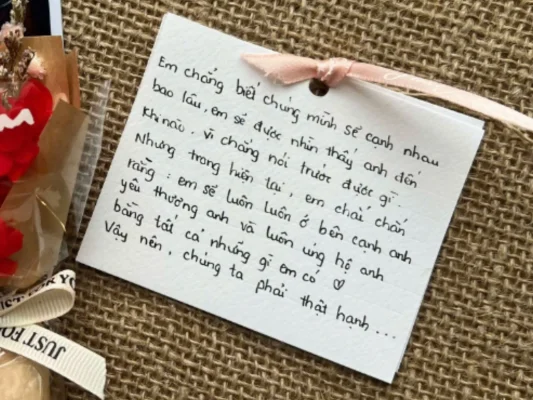 Em chẳng biết chúng mình sẽ cạnh nhau
bao lâu, em sẽ được nhìn thấy anh đến
khi nào. Vì chẳng nói trước được gì.
Nhưng trong hiện tại, em chắc chắn
rằng: em sẽ luôn luôn ở bên cạnh anh
yêu thương anh và luôn ủng hộ anh
bằng tất cả những gì em có ♡
Vậy nên, chúng ta phải thật hạnh...
JUST FO